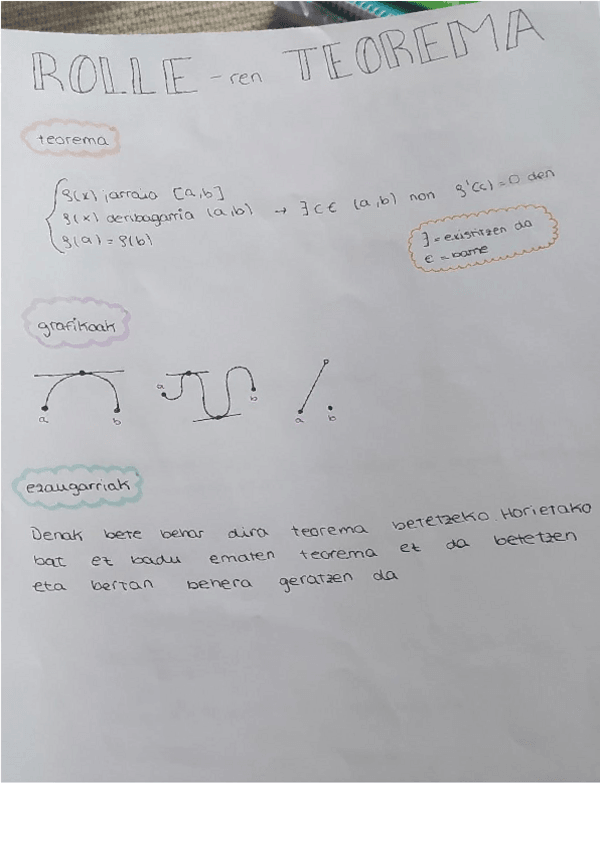 ROLLE -ren TEOREMA
teorema
f(x) jarraua [a,b]
f(x) deribagarria (a,b) → ∃ c ∈ (a,b) non f'(c)=0 den
f(a) = f(b)
∃ = existitzen da
∈ = barne
grafikoak
a b
a b
a b
ezaugarriak
Denak bete behar dira teorema betetzeko. Horietako
bat ez badu ematen teorema ez da betetzen
eta bertan behera geratzen da